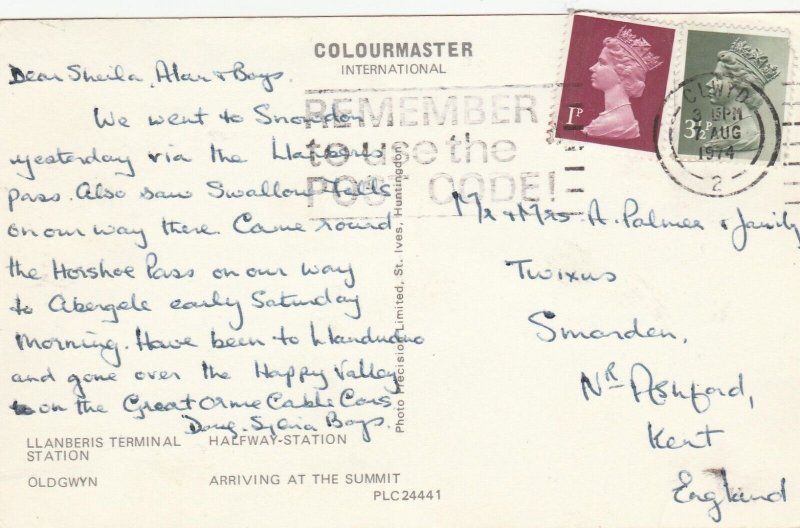 COLOURMASTER
INTERNATIONAL
REMEMBER
to use the
POST CODE!
1P
3½P
CLWYD
3 15PM
2 AUG
1974
2
Dear Sheila, Alan & Boys.
We went to Snowdon
yesterday via the Llanberis
pass. Also saw Swallow Falls
on our way there. Came round
the Horshoe Pass on our way
to Abergele early Saturday
Morning. Have been to Llandudno
and gone over the Happy Valley
on the Great Orme Cable Cars
Doug. Sylvia Boys.
Mr & Mrs A. Palmer & family
Twixus
Smarden,
Nr Ashford,
Kent
England
Photo Precision Limited, St. Ives, Huntingdon
LLANBERIS TERMINAL STATION
HALFWAY-STATION
OLDGWYN
ARRIVING AT THE SUMMIT
PLC24441